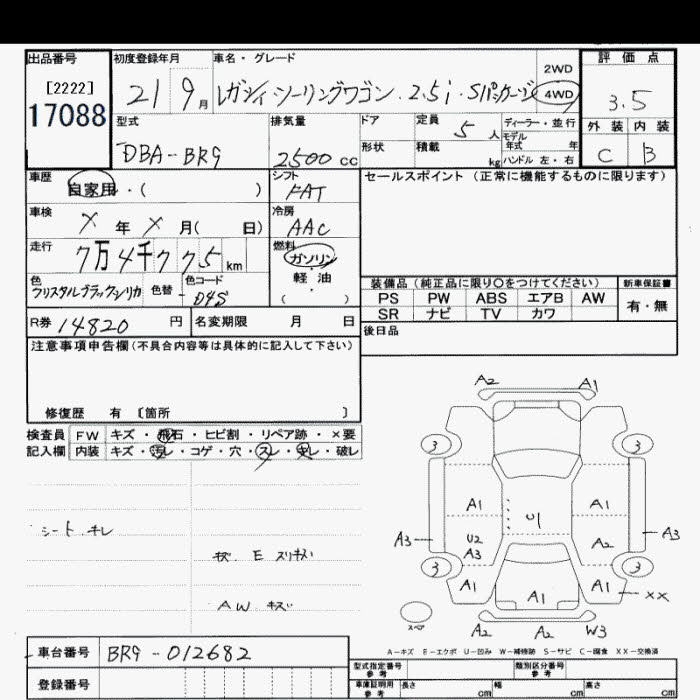 出品番号
[2222]
17088
初度登録年月
21 9月
車名・グレード
レガシィツーリングワゴン 2.5i・Sパッケージ
2WD
4WD
評価点
3.5
外装 内装
C B
型式
DBA-BR9
排気量
2500 CC
ドア
形状
定員 5人
積載 kg
ディーラー・並行
モデル年式 年
ハンドル 左・右
車歴
自家用・( )
シフト
FAT
セールスポイント (正常に機能するものに限ります)
車検
X年X月( 日)
冷房
AAC
走行
7万4千775km
燃料
ガソリン
軽・油
( )
色
クリスタルブラックシリカ
色替
色コード
D4S
装備品 (純正品に限り○をつけてください)
新車保証書
PS PW ABS エアB AW
SR ナビ TV カワ
有・無
R券 14820 円
名変期限 月 日
後日品
注意事項申告欄(不具合内容等は具体的に記入して下さい)
修復歴 有 [箇所 ]
検査員
記入欄
FW キズ・飛石・ヒビ割・リペア跡・×要
内装 キズ・汚レ・コゲ・穴・スレ・キレ・破レ
シート キレ
キズ E スリキズ
AW キズ
A2 A1
3 3
A1 U1 A1
A3 U2 A3 A2 A3
3 3
A1 A1 A1 XX
スペア
A2 A2 W3
A-キズ E-エクボ U-凹み W-補修跡 S-サビ C-腐食 XX-交換済
車台番号 BR9-012682
登録番号
型式指定番号
参考
類別区分番号
参考
車庫証明用
参考
長さ cm 幅 cm 高さ cm